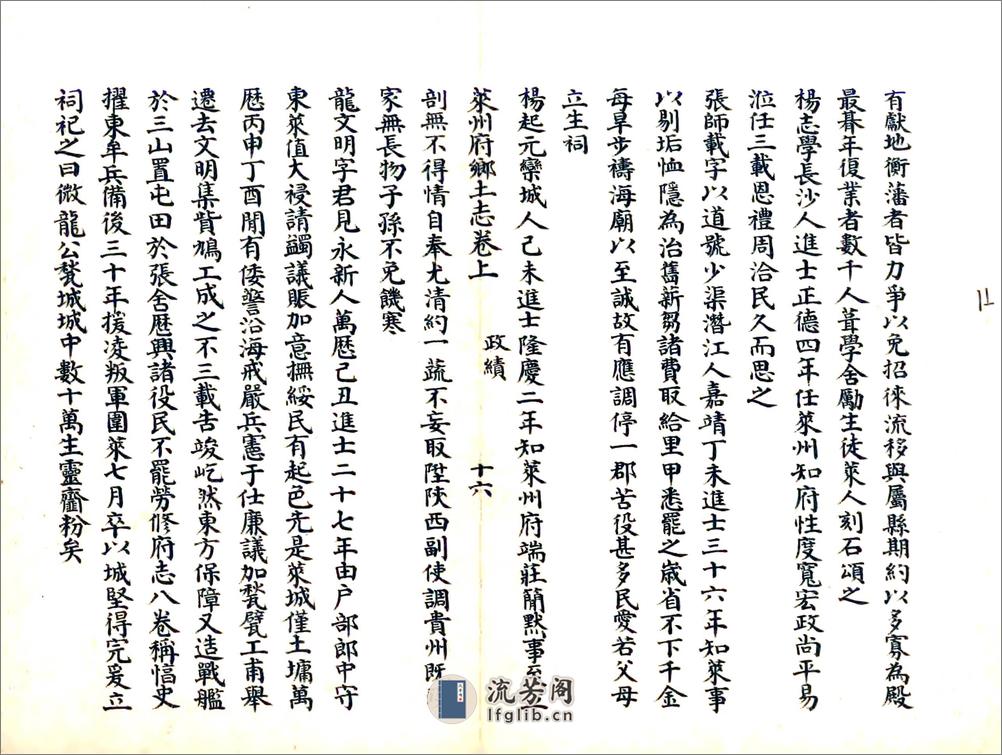 有獻地衡藩者皆力爭以免招徠流移與屬縣期約以多寡為殿
最朞年復業者數千人葺學舍勵生徒萊人刻石頌之
楊志學長沙人進士正德四年任萊州知府性度寬宏政尚平易
涖任三載恩禮周洽民久而思之
張師載字以道號少渠潛江人嘉靖丁未進士三十六年知萊事
以剔垢恤隱為治舊新芻諸費取給里甲悉罷之歲省不下千金
每旱步禱海廟以至誠故有應調停一郡苦役甚多民愛若父母
立生祠
楊起元欒城人己未進士隆慶二年知萊州府端莊簡默事至
萊州府鄉土志卷上 政績 十六
剖無不得情自奉尤清約一蔬不妄取陞陝西副使調貴州既
家無長物子孫不免饑寒
龍文明字君見永新人萬歷己丑進士二十七年由户部郎中守
東萊值大祲請蠲議賑加意撫綏民有起色先是萊城僅土墉萬
歷丙申丁酉閒有倭警沿海戒嚴兵憲于仕廉議加甃甓工甫舉
遷去文明集貲鳩工成之不三載吿竣屹然東方保障又造戰艦
於三山置屯田於張舍歷興諸役民不罷勞修府志八卷稱愊史
擢東牟兵備後三十年援凌叛軍圍萊七月卒以城堅得完爰立
祠祀之曰微龍公甃城城中數十萬生靈齏粉矣
流芳阁
lfglib.cn